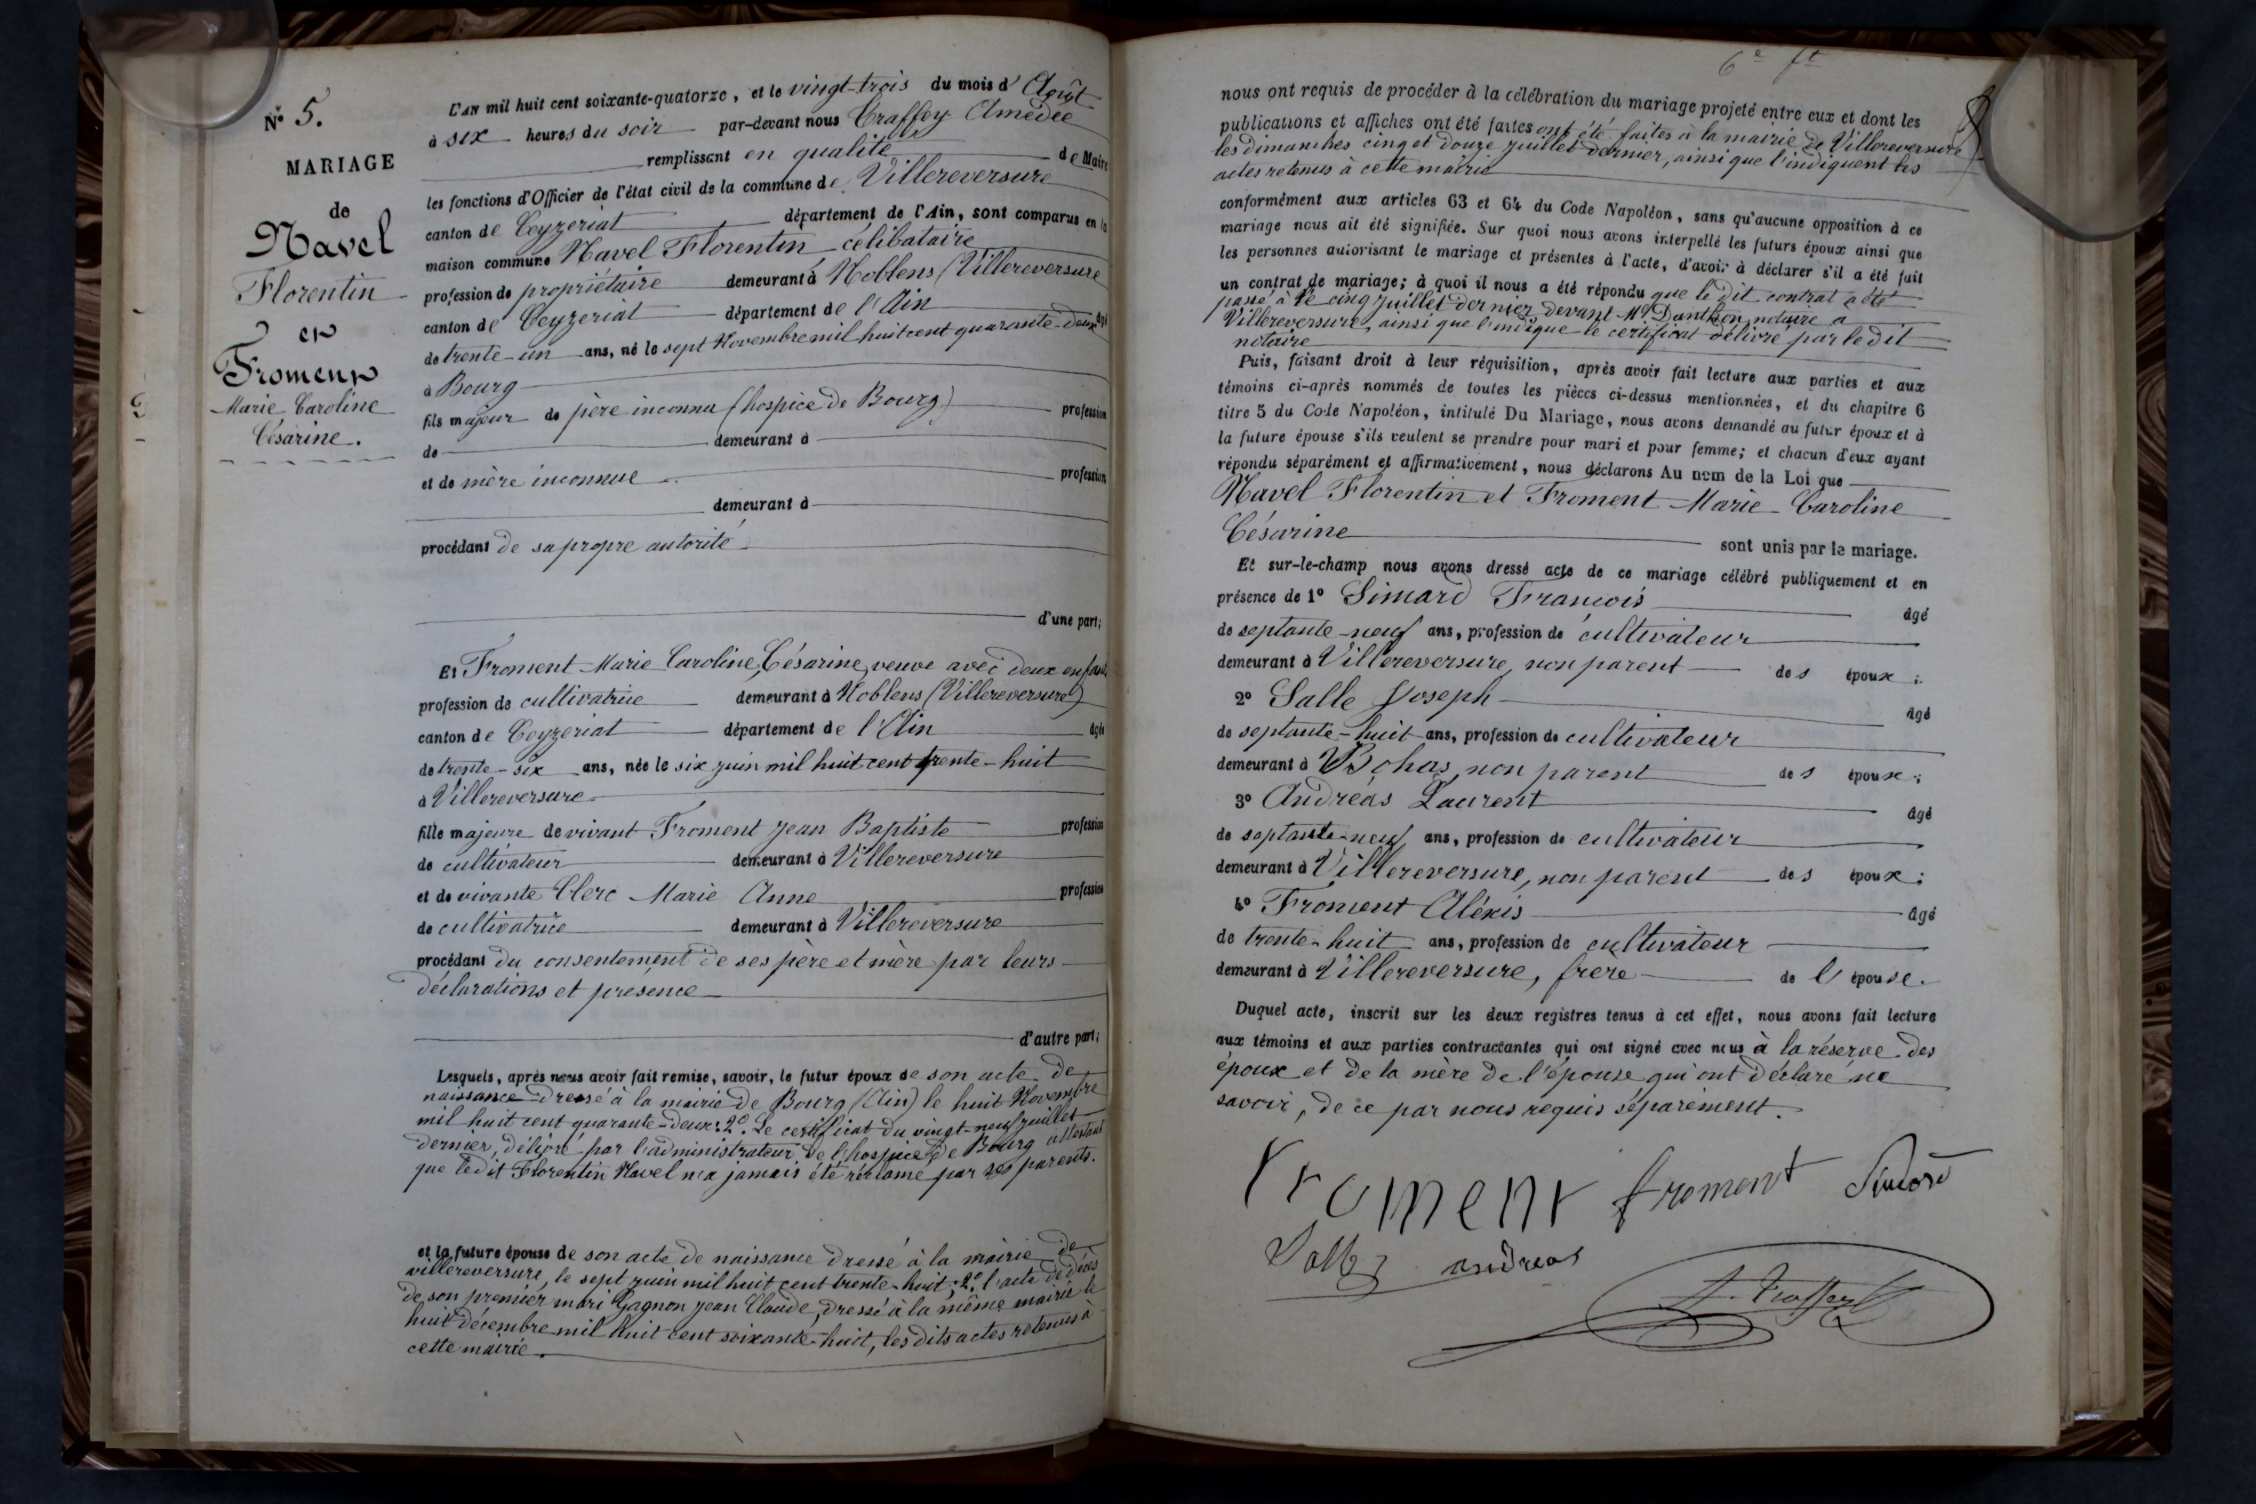 N° 5.
MARIAGE
de
Navel
Florentin
et
Froment
Marie Caroline
Césarine.
L'AN mil huit cent soixante-quatorze, et le vingt-trois du mois d'Août
à six heures du soir par-devant nous Traffey Amédée
remplissant en qualité de Maire
les fonctions d'Officier de l'état civil de la commune de Villereversure
canton de Ceyzeriat département de l'Ain, sont comparus en la
maison commune Navel Florentin célibataire
profession de propriétaire demeurant à Noblens (Villereversure
canton de Ceyzeriat département de l'Ain âgé
de trente-un ans, né le sept Novembre mil huit cent quarante-deux
à Bourg
fils majeur de père inconnu (hospice de Bourg) profession
de demeurant à
et de mère inconnue profession
demeurant à
procédant de sa propre autorité
d'une part;
Et Froment Marie Caroline Césarine, veuve avec deux enfants
profession de cultivatrice demeurant à Noblens (Villereversure)
canton de Ceyzeriat département de l'Ain âgée
de trente-six ans, née le six juin mil huit cent trente-huit
à Villereversure
fille majeure de vivant Froment Jean Baptiste profession
de cultivateur demeurant à Villereversure
et de vivante Clerc Marie Anne profession
de cultivatrice demeurant à Villereversure
procédant du consentement de ses père et mère par leurs
déclarations et présence
d'autre part;
Lesquels, après nous avoir fait remise, savoir, le futur époux de son acte de
naissance dressé à la mairie de Bourg (Ain) le huit Novembre
mil huit cent quarante-deux: 2°. Le certificat du vingt-neuf juillet
dernier, délivré par l'administrateur de l'hospice de Bourg attestant
que ledit Florentin Navel n'a jamais été réclamé par ses parents.
et la future épouse de son acte de naissance dressé à la mairie de
villereversure, le sept juin mil huit cent trente-huit; 2°. l'acte de décès
de son premier mari Gagnon Jean Claude, dressé à la même mairie le
huit décembre mil huit cent soixante-huit, les dits actes retenus à
cette mairie.
6e ft
nous ont requis de procéder à la célébration du mariage projeté entre eux et dont les
publications et affiches ont été faites ont été faites à la mairie de Villereversure
les dimanches cinq et douze juillet dernier, ainsi que l'indiquent les
actes retenus à cette mairie
conformément aux articles 63 et 64 du Code Napoléon, sans qu'aucune opposition à ce
mariage nous ait été signifiée. Sur quoi nous avons interpellé les futurs époux ainsi que
les personnes autorisant le mariage et présentes à l'acte, d'avoir à déclarer s'il a été fait
un contrat de mariage; à quoi il nous a été répondu que le dit contrat a été
passé à le cinq juillet dernier devant Me Danthon notaire a
Villereversure, ainsi que l'indique le certificat délivré par le dit
notaire
Puis, faisant droit à leur réquisition, après avoir fait lecture aux parties et aux
témoins ci-après nommés de toutes les pièces ci-dessus mentionnées, et du chapitre 6
titre 5 du Code Napoléon, intitulé Du Mariage, nous avons demandé au futur époux et à
la future épouse s'ils veulent se prendre pour mari et pour femme; et chacun d'eux ayant
répondu séparément et affirmativement, nous déclarons Au nom de la Loi que
Navel Florentin et Froment Marie Caroline
Césarine
sont unis par le mariage.
Et sur-le-champ nous avons dressé acte de ce mariage célébré publiquement et en
présence de 1° Simard François âgé
de septante-neuf ans, profession de cultivateur
demeurant à Villereversure, non parent des époux;
2° Salle Joseph âgé
de septante-huit ans, profession de cultivateur
demeurant à Bohas, non parent des époux;
3° Andréas Laurent âgé
de septante-neuf ans, profession de cultivateur
demeurant à Villereversure, non parent des époux;
4° Froment Aléxis âgé
de trente-huit ans, profession de cultivateur
demeurant à Villereversure, frère de l'épouse.
Duquel acte, inscrit sur les deux registres tenus à cet effet, nous avons fait lecture
aux témoins et aux parties contractantes qui ont signé avec nous à la réserve des
époux et de la mère de l'épouse qui ont déclaré ne
savoir, de ce par nous requis séparément.
Froment froment Simard
Salle andreas
A. Traffey